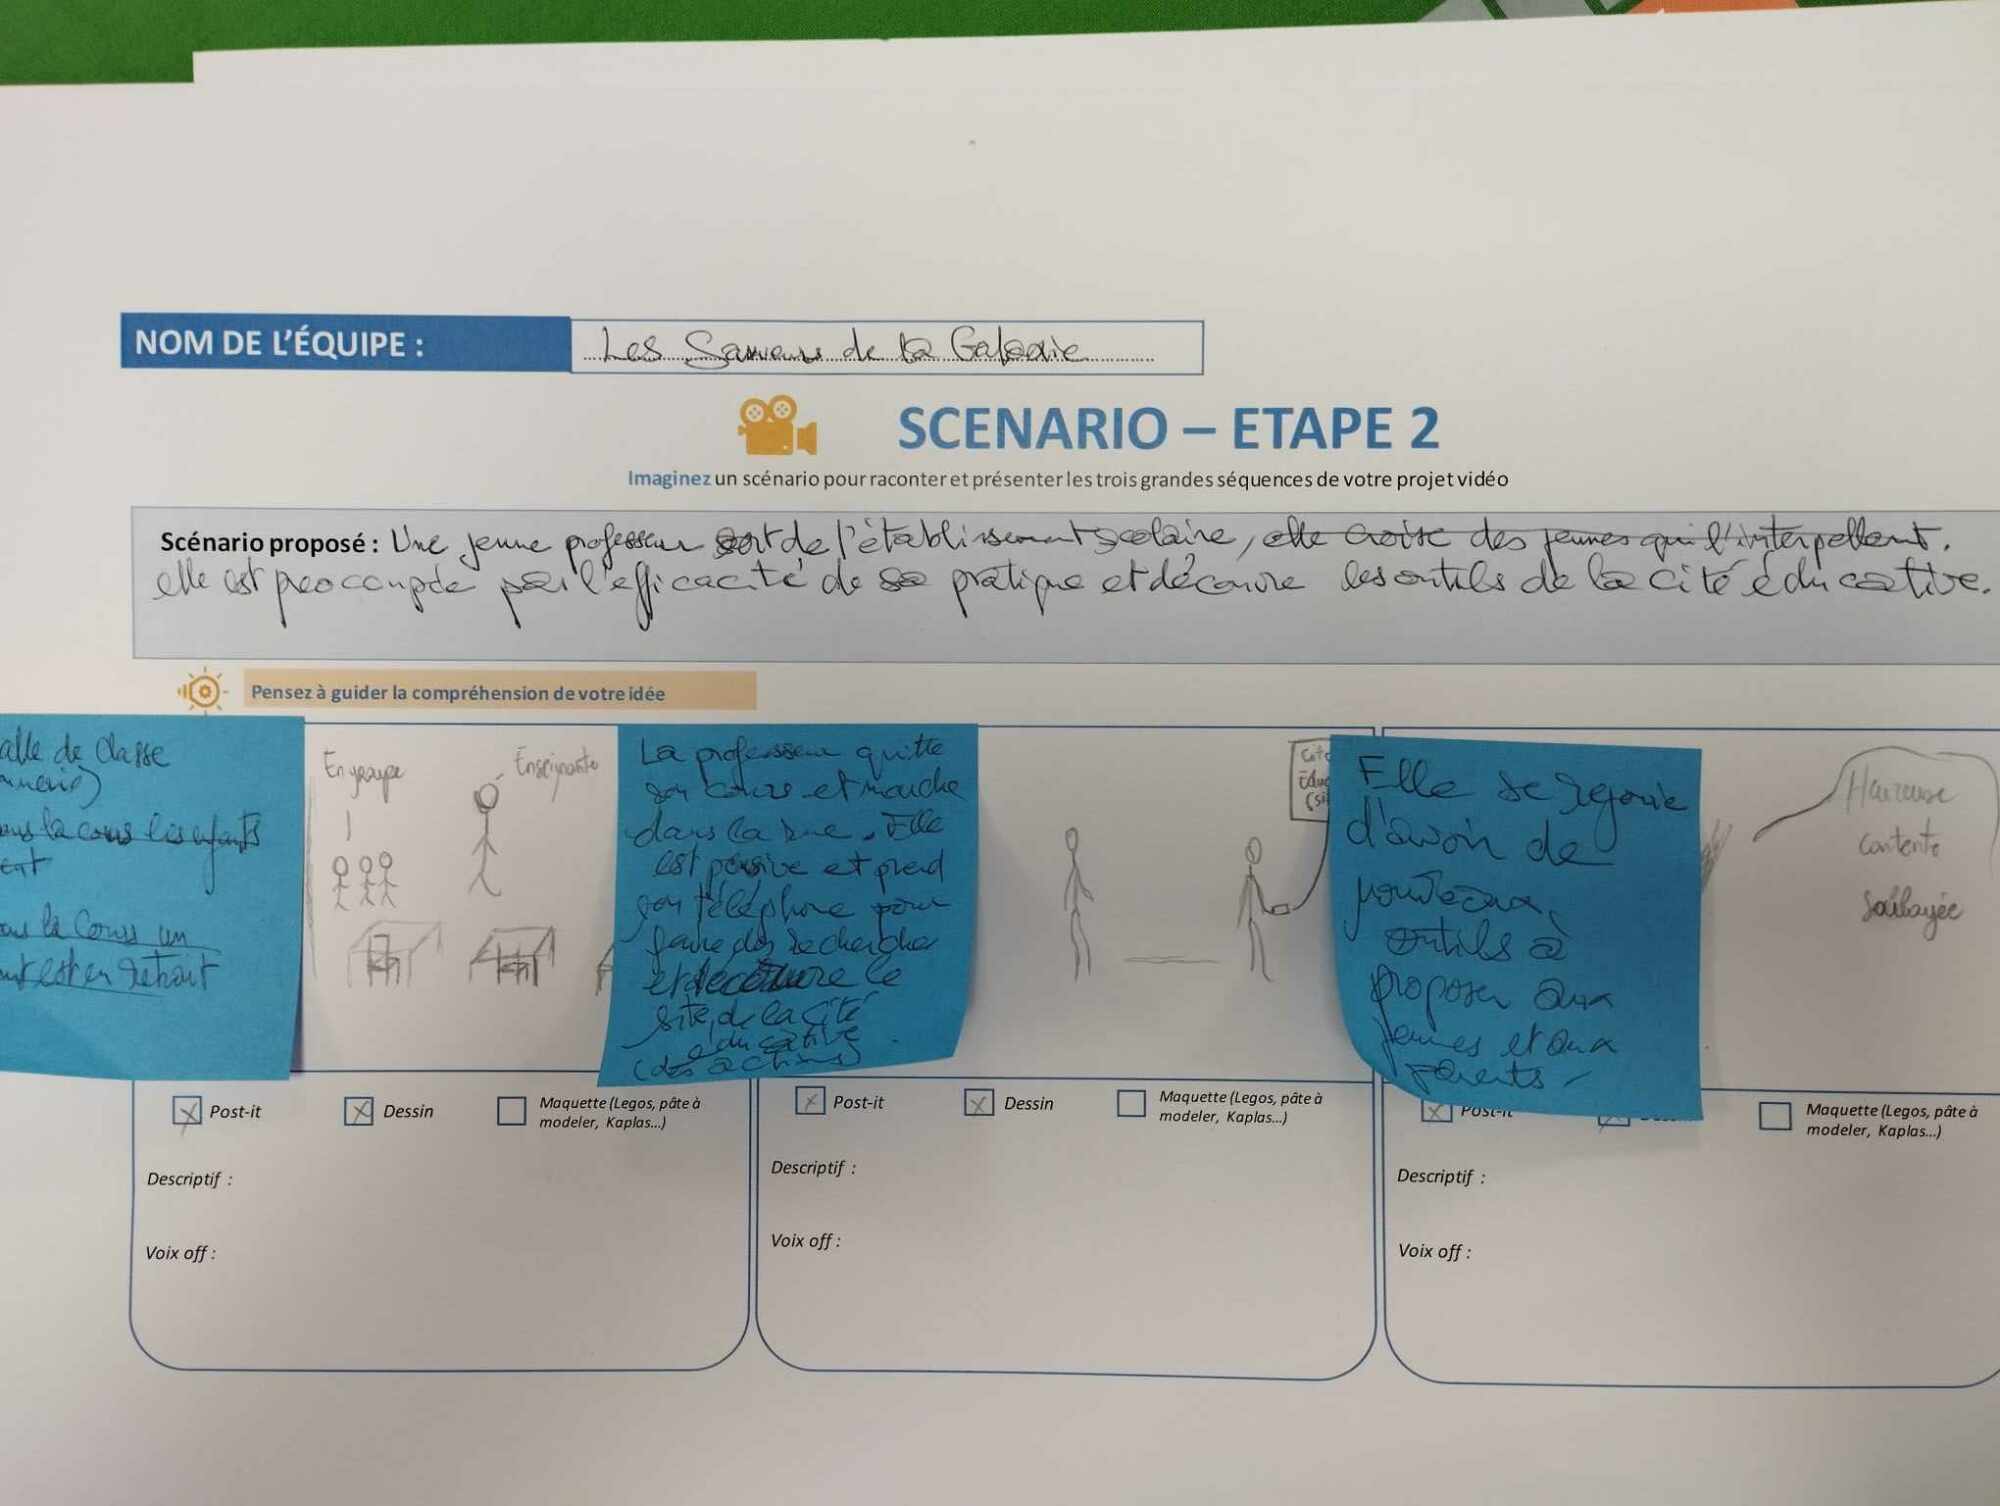 NOM DE L'ÉQUIPE :
Les Sauveurs de la Galaxie
SCENARIO – ETAPE 2
Imaginez un scénario pour raconter et présenter les trois grandes séquences de votre projet vidéo
Scénario proposé : Une jeune professeur sort de l'établissement scolaire, elle croise des jeunes qui l'interpellent.
elle est preoccupée par l'efficacité de sa pratique et découvre les outils de la cité éducative.
Pensez à guider la compréhension de votre idée
alle de classe
la cour les enfants
ent
la cour un
est en retrait
En groupe
Enseignante
La professeur quitte
son cours et marche
dans la rue. Elle
est pensive et prend
son téléphone pour
faire des recherches
et découvre le
site de la cité
éducative
(des actions)
Cité
Educ
(si
Elle se réjouie
d'avoir de
nouveaux
outils à
proposer aux
jeunes et aux
parents -
Heureuse
contente
Soulagée
Post-it
Dessin
Maquette (Legos, pâte à
modeler, Kaplas...)
Descriptif :
Voix off :
Post-it
Dessin
Maquette (Legos, pâte à
modeler, Kaplas...)
Descriptif :
Voix off :
Post-it
Maquette (Legos, pâte à
modeler, Kaplas...)
Descriptif :
Voix off :